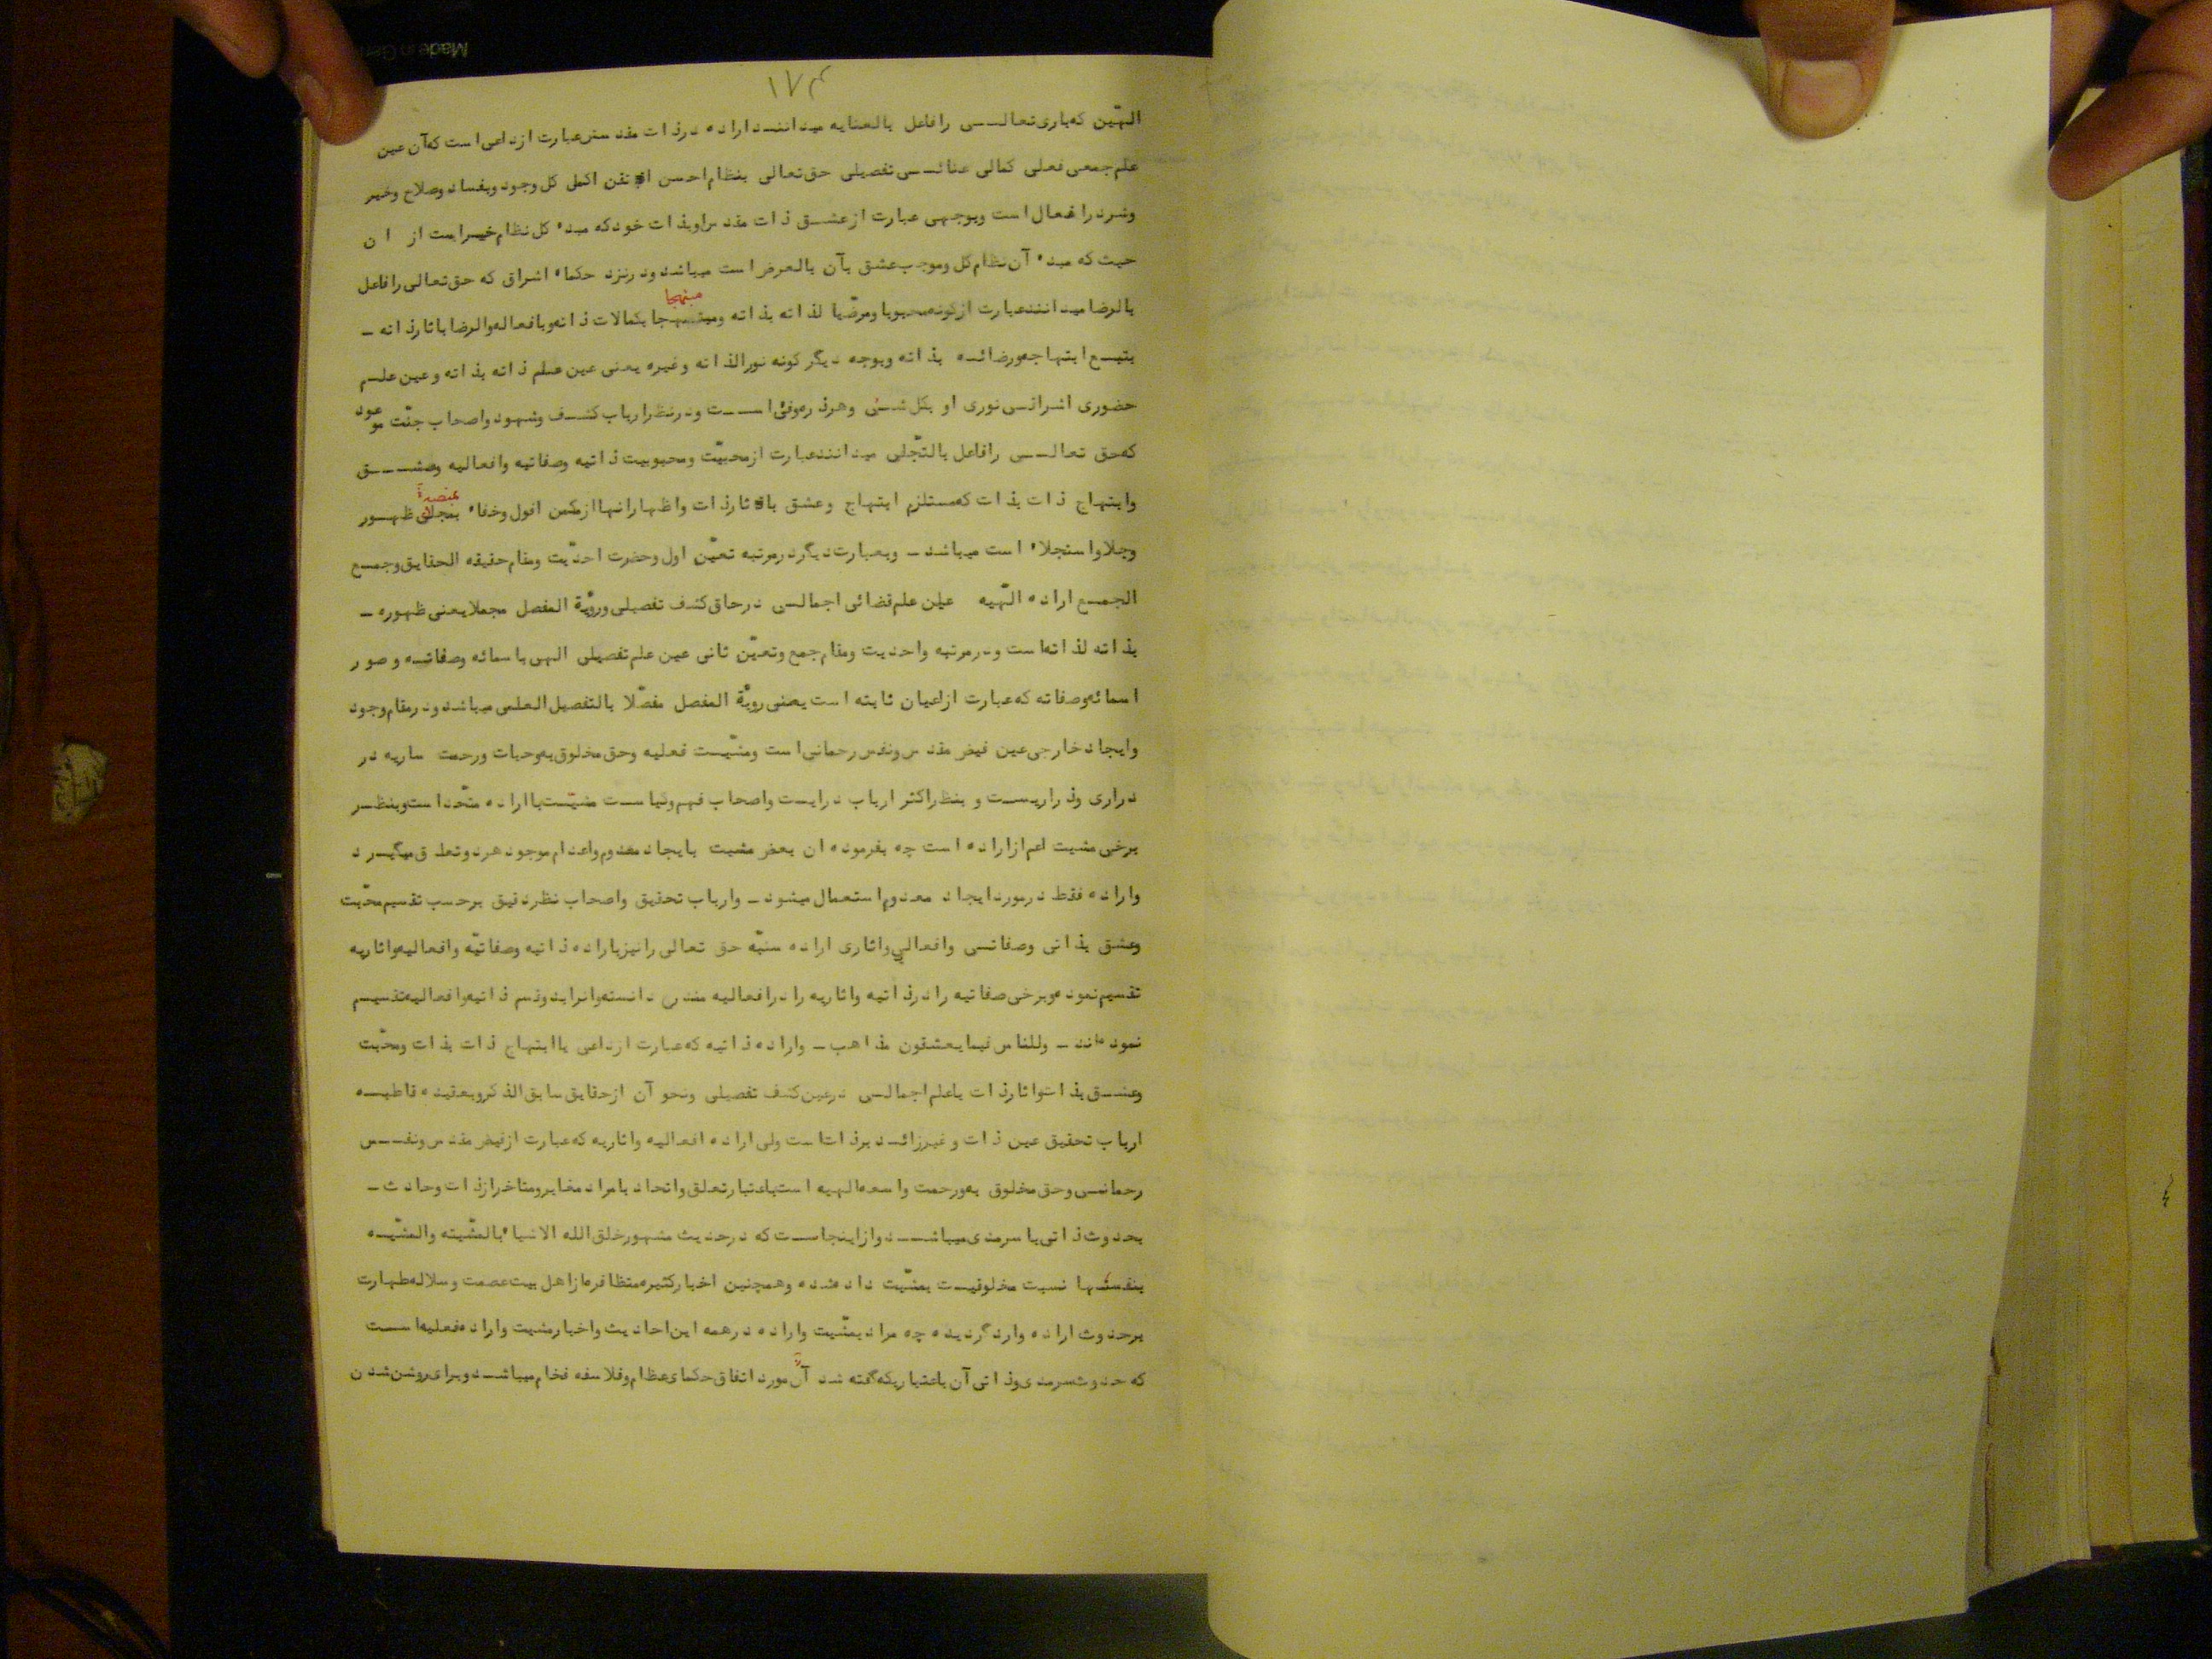 ۱۷۴
الهّین که باری تعالی را فاعل بالعنایه میدانند اراده در ذات مقدسش عبارت از داعی است که آن عین
علم جمعی فعلی کمالی عنائی تفصیلی حق تعالی بنظام احسن اتقن اکمل کل وجود وبفساد وصلاح وخیر
وشر در افعال است وبوجهی عبارت از عشق ذات مقدس او بذات خود که مبدء کل نظام خیر است از ان
حیث که مبدء آن نظام کل وموجب عشق بآن بالعرض است میباشد ودر نزد حکماء اشراق که حق تعالی را فاعل
مبتهجا
بالرضا میدانند عبارت از کونه محبوبا ومرضّیا لذاته بذاته ومبتهجا بکمالات ذاته وبافعاله والرضا باثار ذاته –
بتبع ابتهاجه ورضائه بذاته وبوجه دیگر کونه نورالذاته وغیره یعنی عین علم ذاته بذاته وعین علم
حضوری اشراقی نوری او بکل شئی وهر ذره وفیٔ است ودر نظر ارباب کشف وشهود واصحاب جنّت موعود
که حق تعالی را فاعل بالتّجلی میدانند عبارت از محبیّت ومحبوبیت ذاتیه وصفاتیه وافعالیه وعشق
بمنصهٔ
وابتهاج ذات بذات که مستلزم ابتهاج وعشق باثار ذات واظهار انها از مکمن افول وخفاء بمجلای ظهور
وجلا واستجلاء است میباشد – وبعبارت دیگر در مرتبه تعیّن اول وحضرت احدّیت ومقام حقیقه الحقایق وجمع
الجمع اراده الّهیه عین علم قضائی اجمالی در حاق کشف تفصیلی ورؤیة المفصل مجملا یعنی ظهوره –
بذاته لذاته است ودر مرتبه واحدیت ومقام جمع وتعیّن ثانی عین علم تفصیلی الهی باسمائه وصفاته وصور
اسمائه وصفاته که عبارت از اعیان ثابته است یعنی رویة المفصل مفصّلا بالتفصیل العلمی میباشد ودر مقام وجود
وایجاد خارجی عین فیض مقدس ونفس رحمانی است ومشّیت فعلیه وحق مخلوق به وحیات ورحمت ساریه در
دراری وذراریست و بنظر اکثر ارباب درایت واصحاب فهم وکیاست مشیّت با اراده متّحد است وبنظر
برخی مشیت اعم از اراده است چه بفرموده ان بعض مشیت بایجاد معدوم واعدام موجود هر دو تعلق میگیرد
واراده فقط در مورد ایجاد معدوم استعمال میشود – وارباب تحقیق واصحاب نظر دقیق برحسب تقسیم محبّت
وعشق بذاتی وصفاتی وافعالی واثاری اراده سنیّه حق تعالی را نیز باراده ذاتیه وصفاتیّه وافعالیه واثاریه
تقسیم نموده وبرخی صفاتیه را در ذاتیه واثاریه را در افعالیه مندرج دانسته وانرا بدو قسم ذاتیه وافعالیه تقسیم
نموده اند – وللناس فیما یعشقون مذاهب – واراده ذاتیه که عبارت از داعی یا ابتهاج ذات بذات ومحبّت
وعشق بذات واثار ذات یا علم اجمالی در عین کشف تفصیلی ونحو آن از حقایق سابق الذکر وبعقیده قاطبه
ارباب تحقیق عین ذات وغیر زائد بر ذات است ولی اراده افعالیه واثاریه که عبارت از فیض مقدس ونفس
رحمانی وحق مخلوق به ورحمت واسعه الهیه است باعتبار تعلق واتحاد با مراد مغایر ومتاخر از ذات وحادث –
بحدوث ذاتی یا سرمدی میباشد واز اینجاست که در حدیث مشهور خلق الله الاشیاء بالمشّیته والمشّیه
بنفسها نسبت مخلوقیت بمشّیت داده شده وهمچنین اخبار کثیره متظافره از اهل بیت عصمت وسلاله طهارت
برحدوث اراده وارد گردیده چه مراد بمشّیت واراده در همه این احادیث واخبار مشیت واراده فعلیه است
که حدوث سرمدی وذاتی آن باعتباریکه گفته شد آن مورد اتفاق حکمای عظام وفلاسفه فخام میباشد وبرای روشن شدن